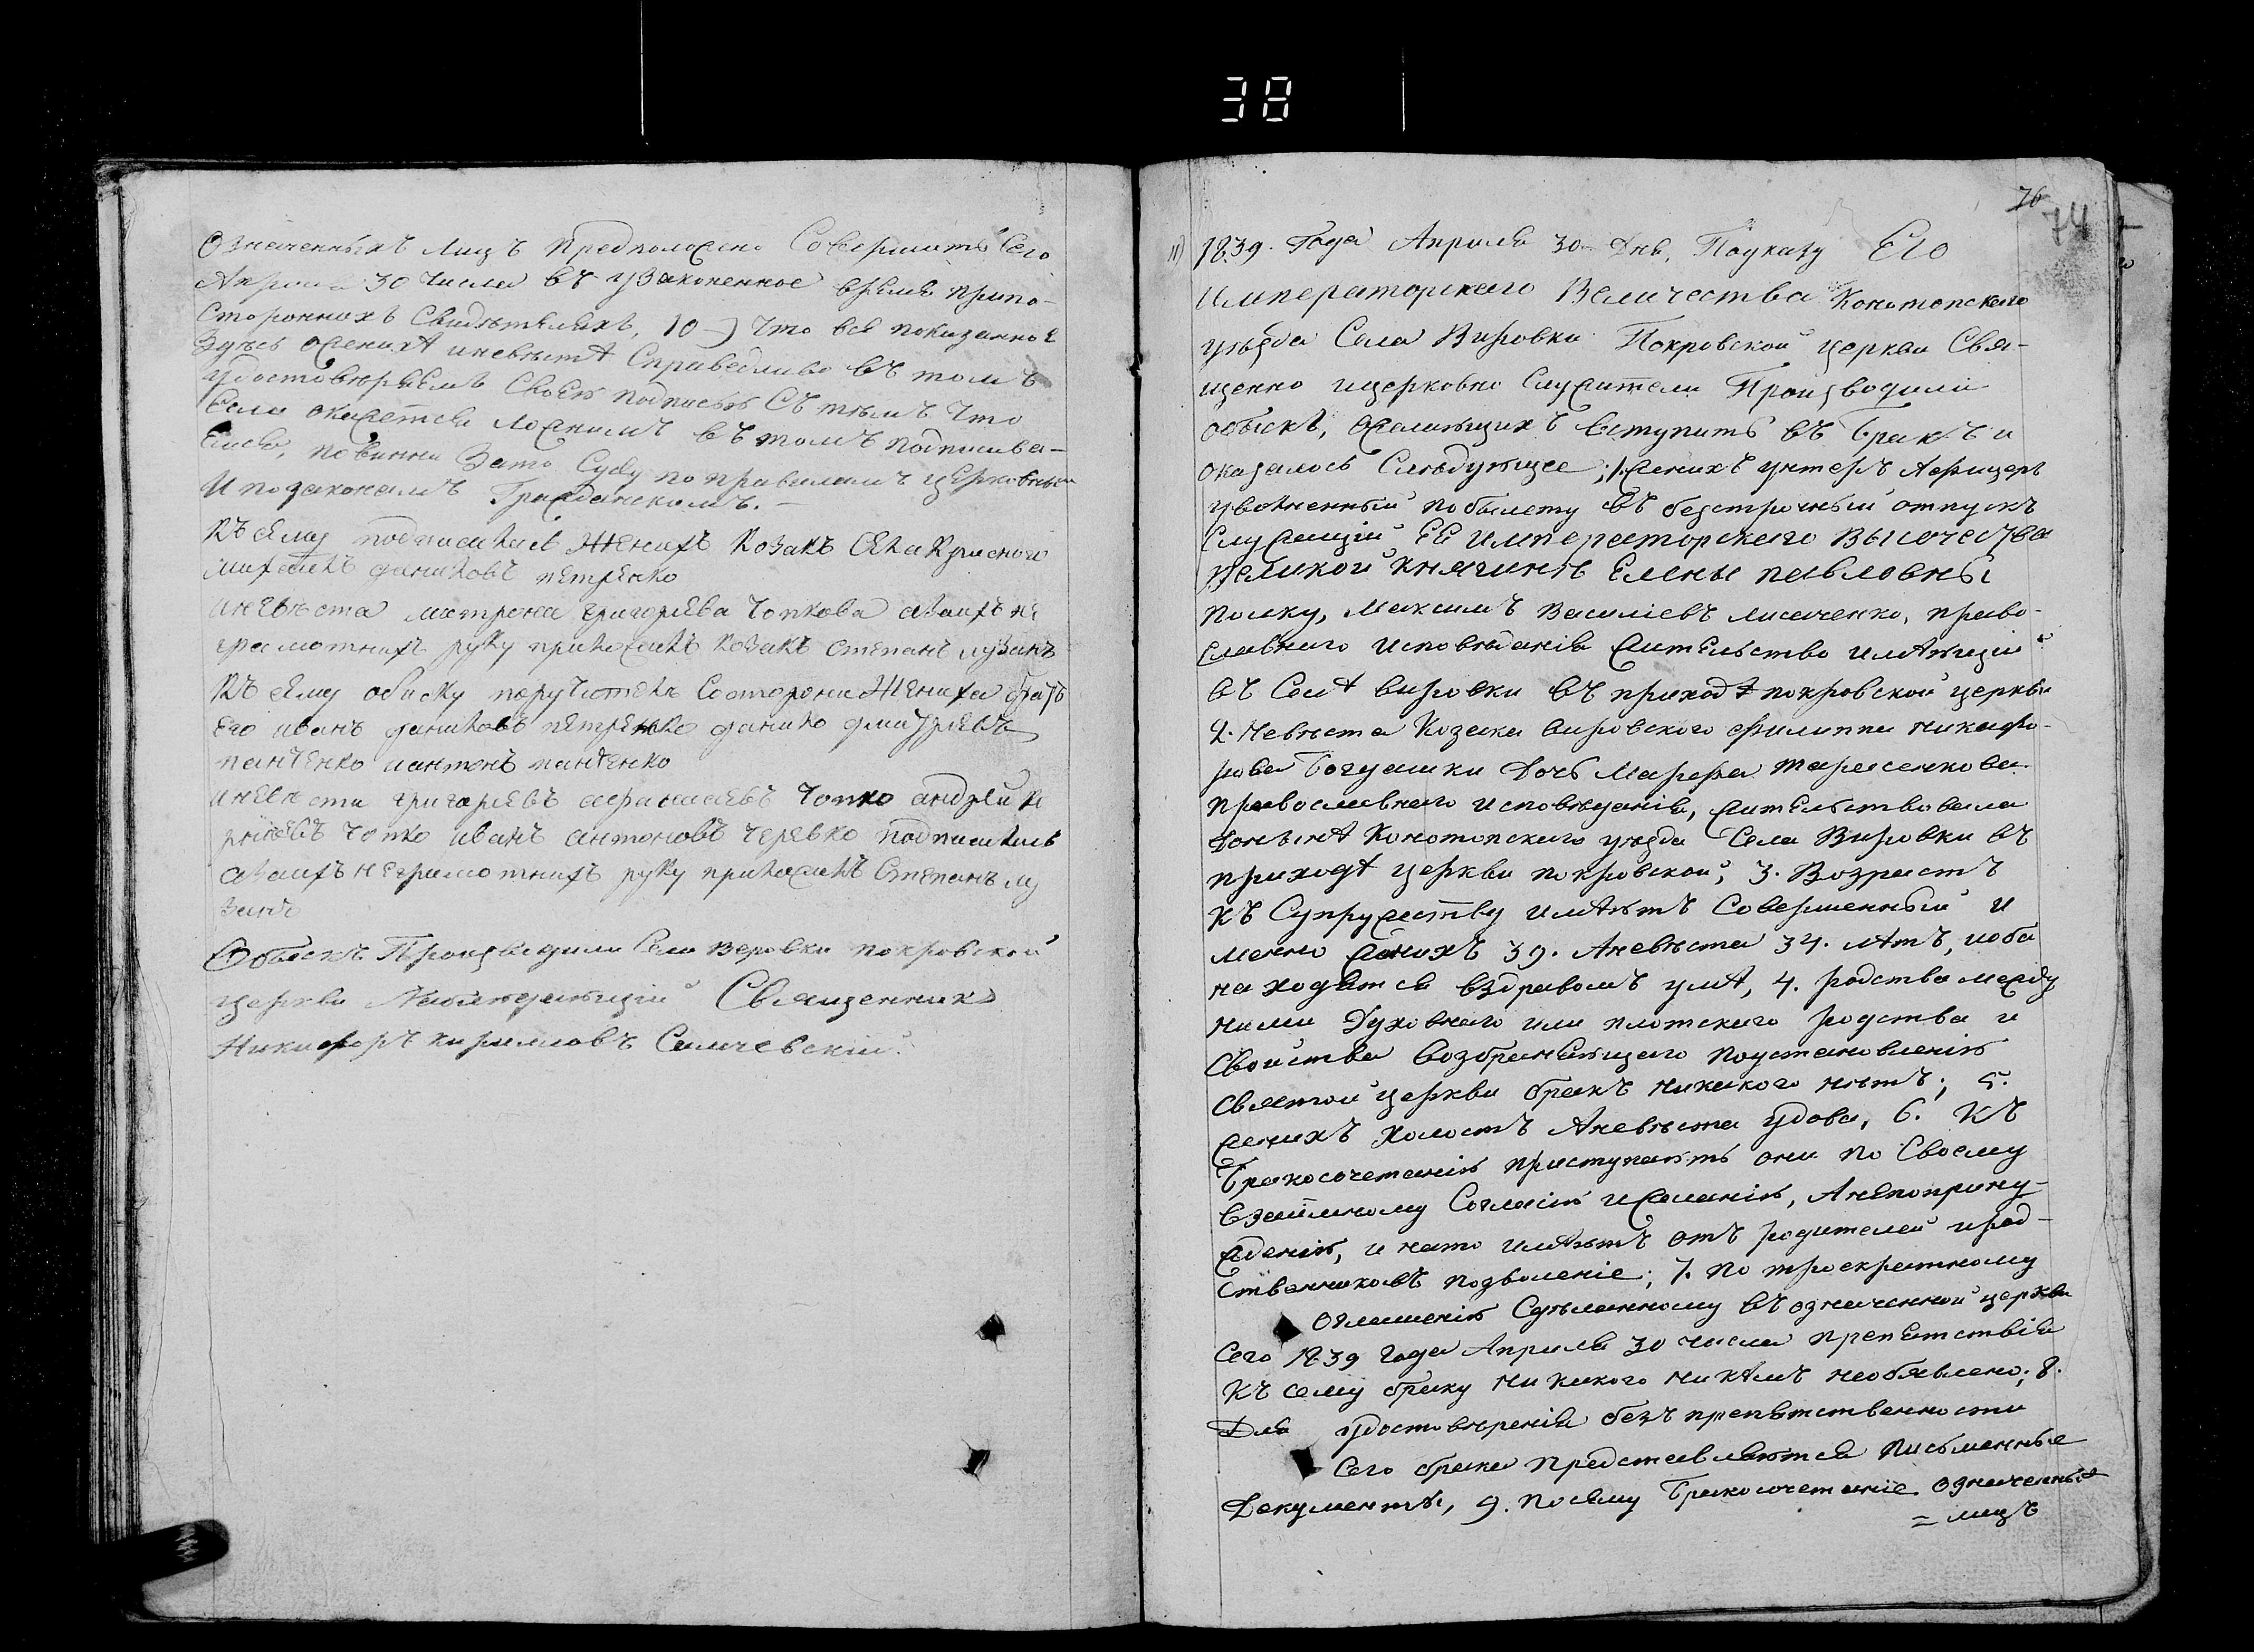 38
означенныхъ лицъ предположено Совершить Сего
Апреля 30 числа въ узаконенное время припо-
Стороннихъ Свидѣтеляхъ, 10) Что всё показанное
Здѣсь оженихѣ иневѣстѣ Справедливо въ томъ
удостовѣряемъ Своею подписью Съ тѣмъ Что
Если окажется ложнымъ въ томъ подписыва-
Емся, повинни Зато Суду по правиламъ церковным
И позаконамъ Гражданскимъ. —
Къ сему подписался Женихъ Козакъ Села Красного
михаилъ даниловъ петренко
иневѣста матрона григорѣва чопкова аваихъ не
грамотнихъ руку приложилъ козакъ степанъ лузанъ
Къ сему обиску поручител Состорони Жениха братъ
его иванъ даниловъ петренко данило дмитріевъ
панченко иантонъ панченко
иневести григоріевъ афанасіевъ чопко андрей ки
риловъ чопко иванъ антоновъ черевко подписались
аваихъ неграмотнихъ руку приложилъ Степанъ лу
занъ
Обыскъ Произвидили Села Веровки покровской
церкви Священникъ
Никифоръ кириловъ Самчевскій
76
74
11) 1839. Года Апреля 30 Дня, Поуказу Его
Императорского Величества Конотопского
уѣзда Села Вировки Покровской церкви Свя-
щенно ицерковно Служители Производили
обыскъ, ожелающихъ вступить въ Бракъ и
оказалось Слѣдующее; 1. женихъ унтеръ Афицеръ
уволненный побилету въ безсрочный отпускъ
Служащій ЕЕ Императорского Высочества
Великой Княгинѣ Елены Павловны
полку, Максимъ Василіевъ лисаченко, право-
славного исповѣданія жительство имѣющій
въ Селѣ вировки въ приходѣ покровской церкви
2. Невѣста Козака вировского филиппа никифо-
рова Богдашки Дочь Марфа тарасенкова
православного исповѣданія, жительствовала
донынѣ Конотопского уѣзда Села Вировки въ
приходѣ церкви покровской; 3. Возрастъ
къ Супружеству имѣютъ Совершенный и
менно женихъ 39. Аневѣста 34. лѣтъ, иоба
находятся вздравомъ умѣ, 4. родства между
ними Духовного или плотского родства и
Свойства возбраняющаго поустановленію
святой церкви бракъ никакого нѣтъ; 5.
женихъ холостъ Аневѣста удова, 6. Къ
Бракосочетанію приступаютъ они по Своему
взаимному Согласію ижеланію, Анепоприну-
жденію, и нато имѣютъ отъ родителей ирод-
ственниковъ позволеніе; 7. По троекратному
оглашенію Сдѣланному въ означенной церкви
Сего 1839 года Апреля 30 числа препятствія
къ сему браку никакого никѣмъ необявлено; 8.
Для удостовѣренія безъ препятственности
Сего брака представляются писменные
Документы, 9. посему Бракосочетаніе означенных
= лицъ